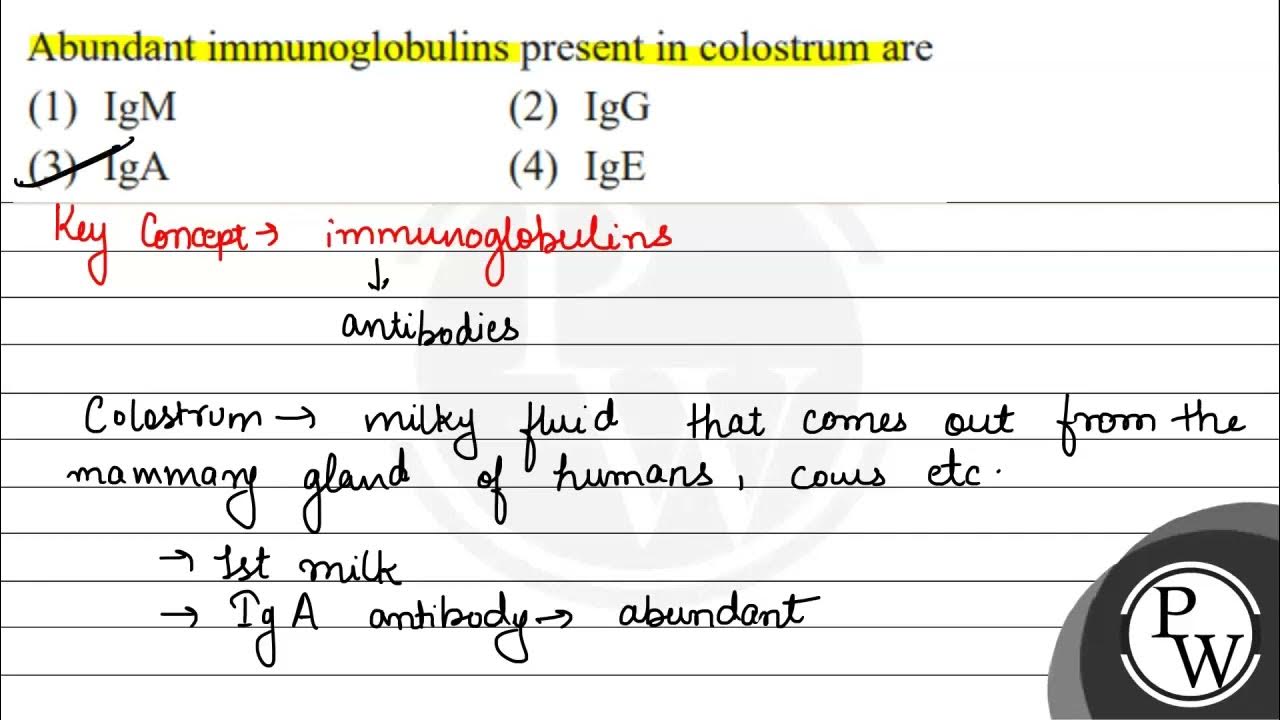 Abundant immunoglobulins present in colostrum are
(1) IgM (2) IgG
(3) IgA (4) IgE
Key Concept → immunoglobulins
↓
antibodies
Colostrum → milky fluid that comes out from the
mammary gland of humans, cows etc.
→ 1st milk
→ IgA antibody → abundant
P
W
PW